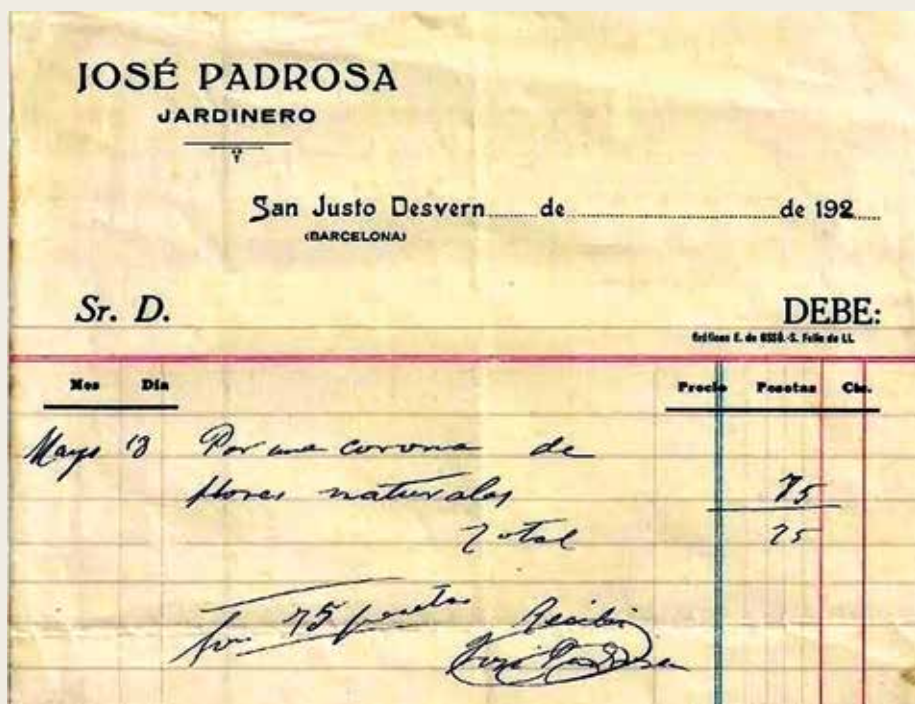 JOSÉ PADROSA
JARDINERO
San Justo Desvern ...... de ........................ de 192....
(BARCELONA)
Sr. D.
DEBE:
Gráficas E. de OSSÓ.-S. Feliu de Ll.
Mes Día Precio Pesetas Cts.
Mayo 13 Por una corona de
flores naturales 75
Total 75
Son 75 pesetas
Recibí
José Padrosa